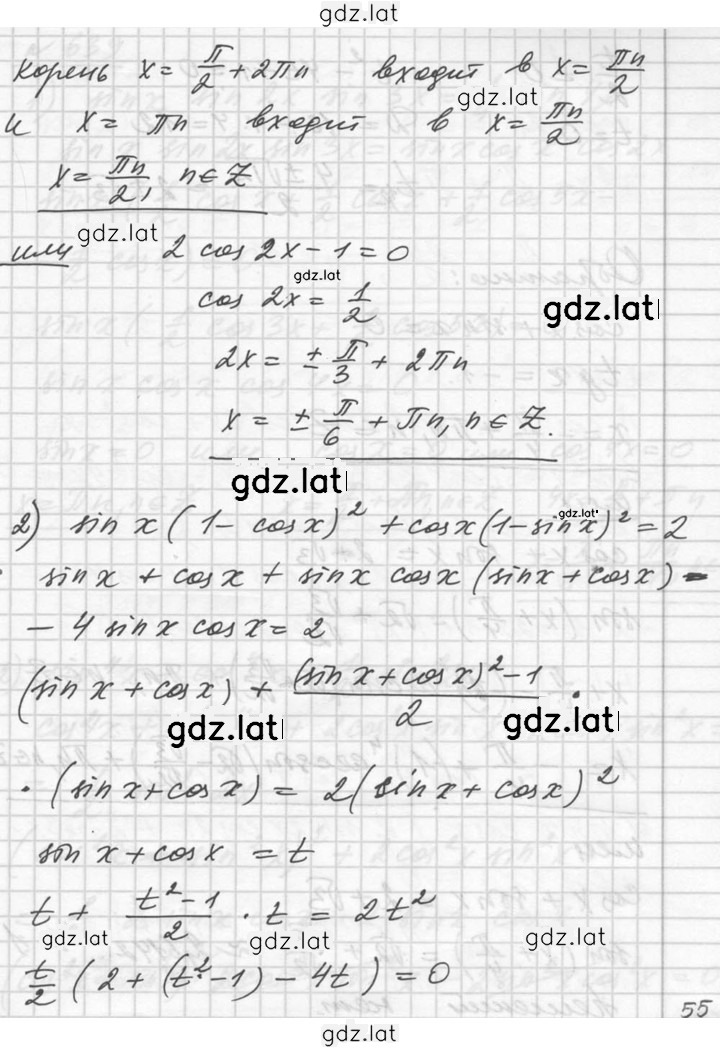 gdz.lat
корень x = π/2 + 2πn входит в x = πn/2
gdz.lat
и x = πn входит в x = πn/2
x = πn/2, n ∈ Z
gdz.lat
или 2 cos 2x − 1 = 0
gdz.lat
cos 2x = 1/2
gdz.lat
2x = ± π/3 + 2πn
x = ± π/6 + πn, n ∈ Z.
gdz.lat
gdz.lat
2) sin x (1 − cos x)² + cos x (1 − sin x)² = 2
sin x + cos x + sin x cos x (sin x + cos x) −
− 4 sin x cos x = 2
(sin x + cos x) + ((sin x + cos x)² − 1)/2 ·
gdz.lat gdz.lat
· (sin x + cos x) = 2 (sin x + cos x)²
sin x + cos x = t
t + (t² − 1)/2 · t = 2t²
gdz.lat gdz.lat gdz.lat
t/2 (2 + (t² − 1) − 4t) = 0
55
gdz.lat